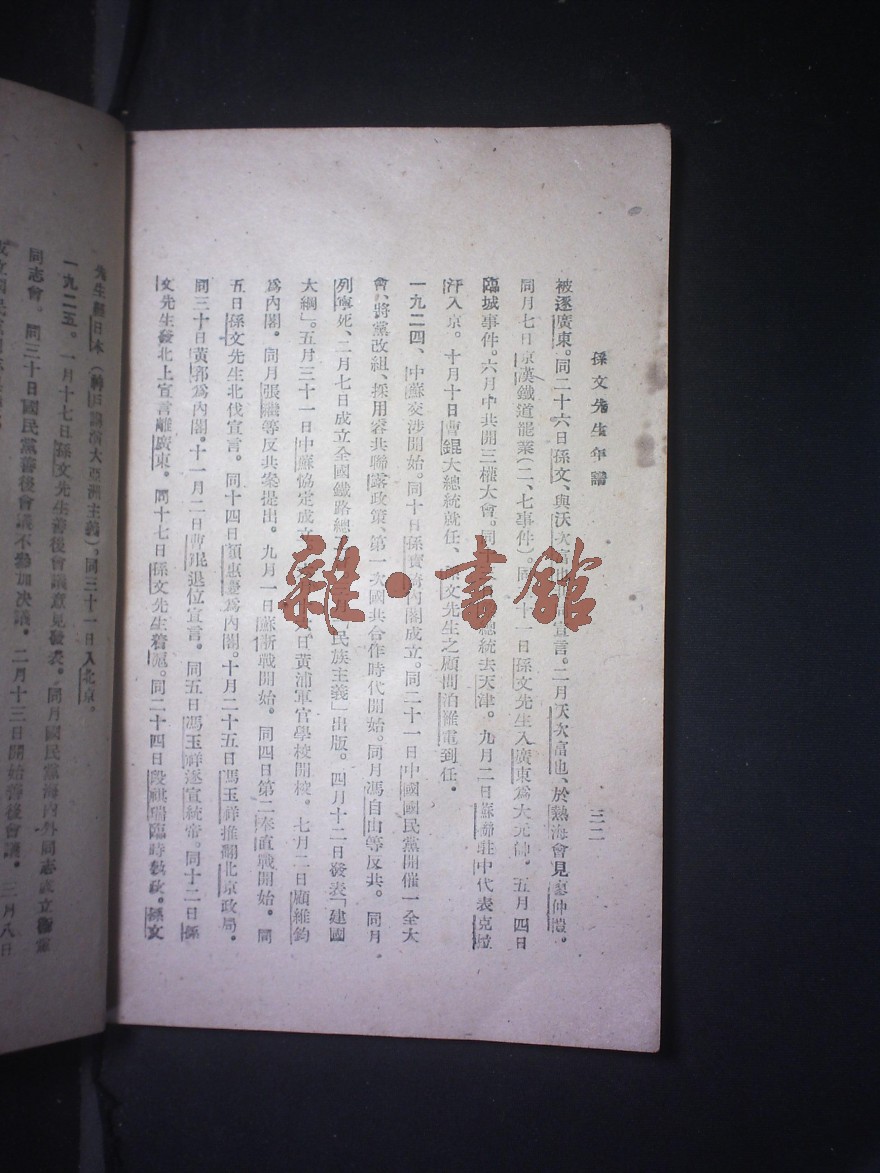 孫文先生年譜
三二
被逐廣東。同二十六日孫文、與沃次富也宣言。二月沃次富也、於熱海會見廖仲愷。
同月七日京漢鐵道罷業(二、七事件)。同十一日孫文先生入廣東爲大元帥。五月四日
臨城事件。六月中共開三權大會。同總統去天津。九月二日蘇聯駐中代表克拉
汗入京。十月十日曹錕大總統就任、孫文先生之顧問泊羅電到任。
一九二四、中蘇交涉開始。同十日孫寶琦內閣成立。同二十一日中國國民黨開催一全大
會、將黨改組、採用容共聯露政策、第一次國共合作時代開始。同月馮自由等反共。同月
列寧死、二月七日成立全國鐵路總「民族主義」出版。四月十二日發表「建國
大綱」。五月三十一日中蘇協定成立日黃浦軍官學校開校。七月二日顧維鈞
爲內閣。同月張繼等反共案提出。九月一日蘇浙戰開始。同四日第二奉直戰開始。同
五日孫文先生北伐宣言。同十四日顏惠慶爲內閣。十月二十五日馮玉祥推翻北京政局。
同三十日黃郛爲內閣。十一月二日曹琨退位宣言。同五日馮玉祥逐宣統帝。同十二日孫
文先生發北上宣言離廣東。同十七日孫文先生着滬。同二十四日段祺瑞臨時執政。孫文
先生經日本(神戶講演大亞洲主義)。同三十一日入北京。
一九二五。一月十七日孫文先生善後會議意見發表。同月國民黨海內外同志成立衞黨
同志會。同三十日國民黨善後會議不參加決議。二月十三日開始善後會議。三月八日
雜·書館